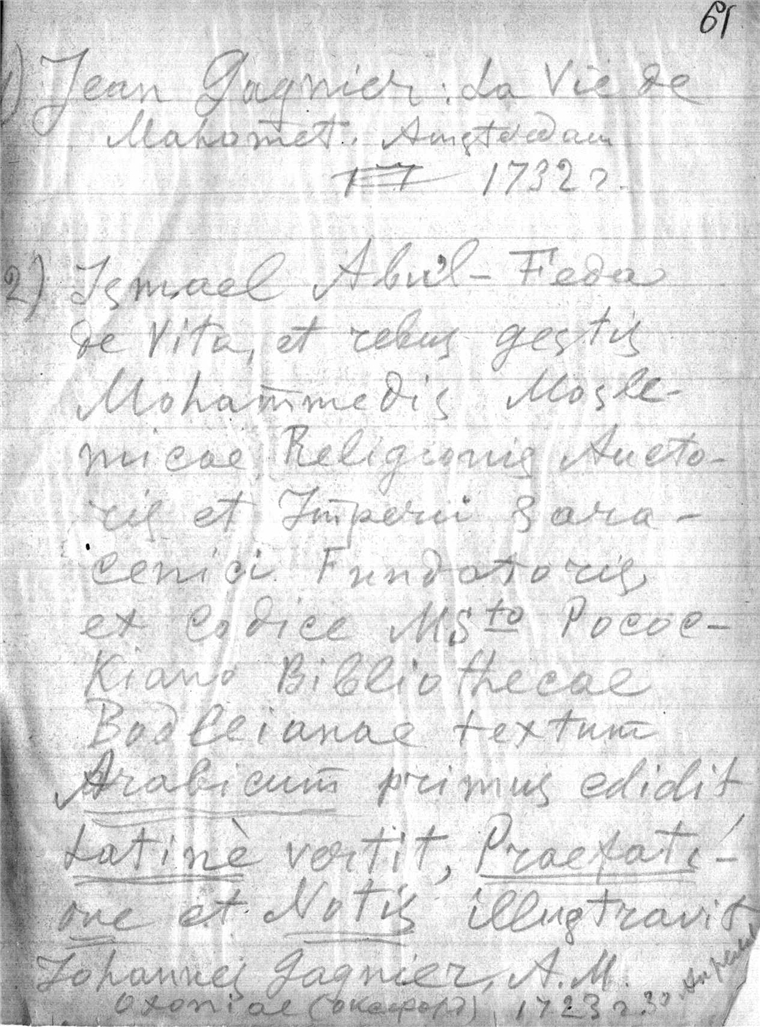 61
1) Jean Gagnier: La Vie de
Mahomet. Amsterdam
17 1732 г.
2) Ismael Abu'l-Feda
de Vita, et rebus gestis
Mohammedis Mosle-
micae Religionis Aucto-
ris et Imperii Sara-
cenici Fundatoris
ex Codice MSto Pococ-
kiano Bibliothecae
Bodleianae textum
Arabicum primus edidit
Latinè vertit, Praefati-
one et Notis illustravit
Johannes Gagnier, A.M.
Oxoniae (Оксфорд), 1723 г.